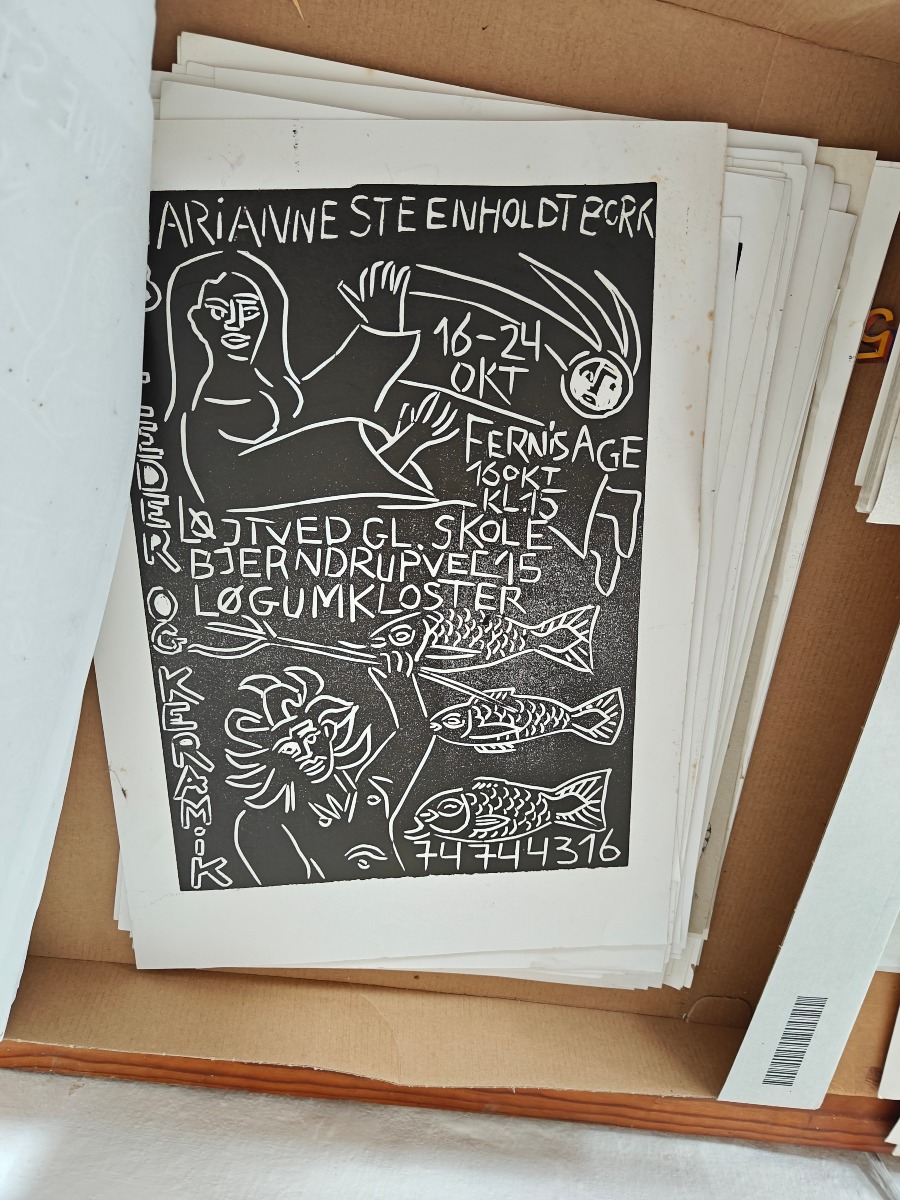 ARiANNE STEENHOLDT BORK
16-24
OKT
FERNiSAGE
16 OKT
KL.15
LØJTVED GL. SKOLE
BJERNDRUPVEJ 15
LØGUMKLOSTER
74 744316
OG KERAMiK